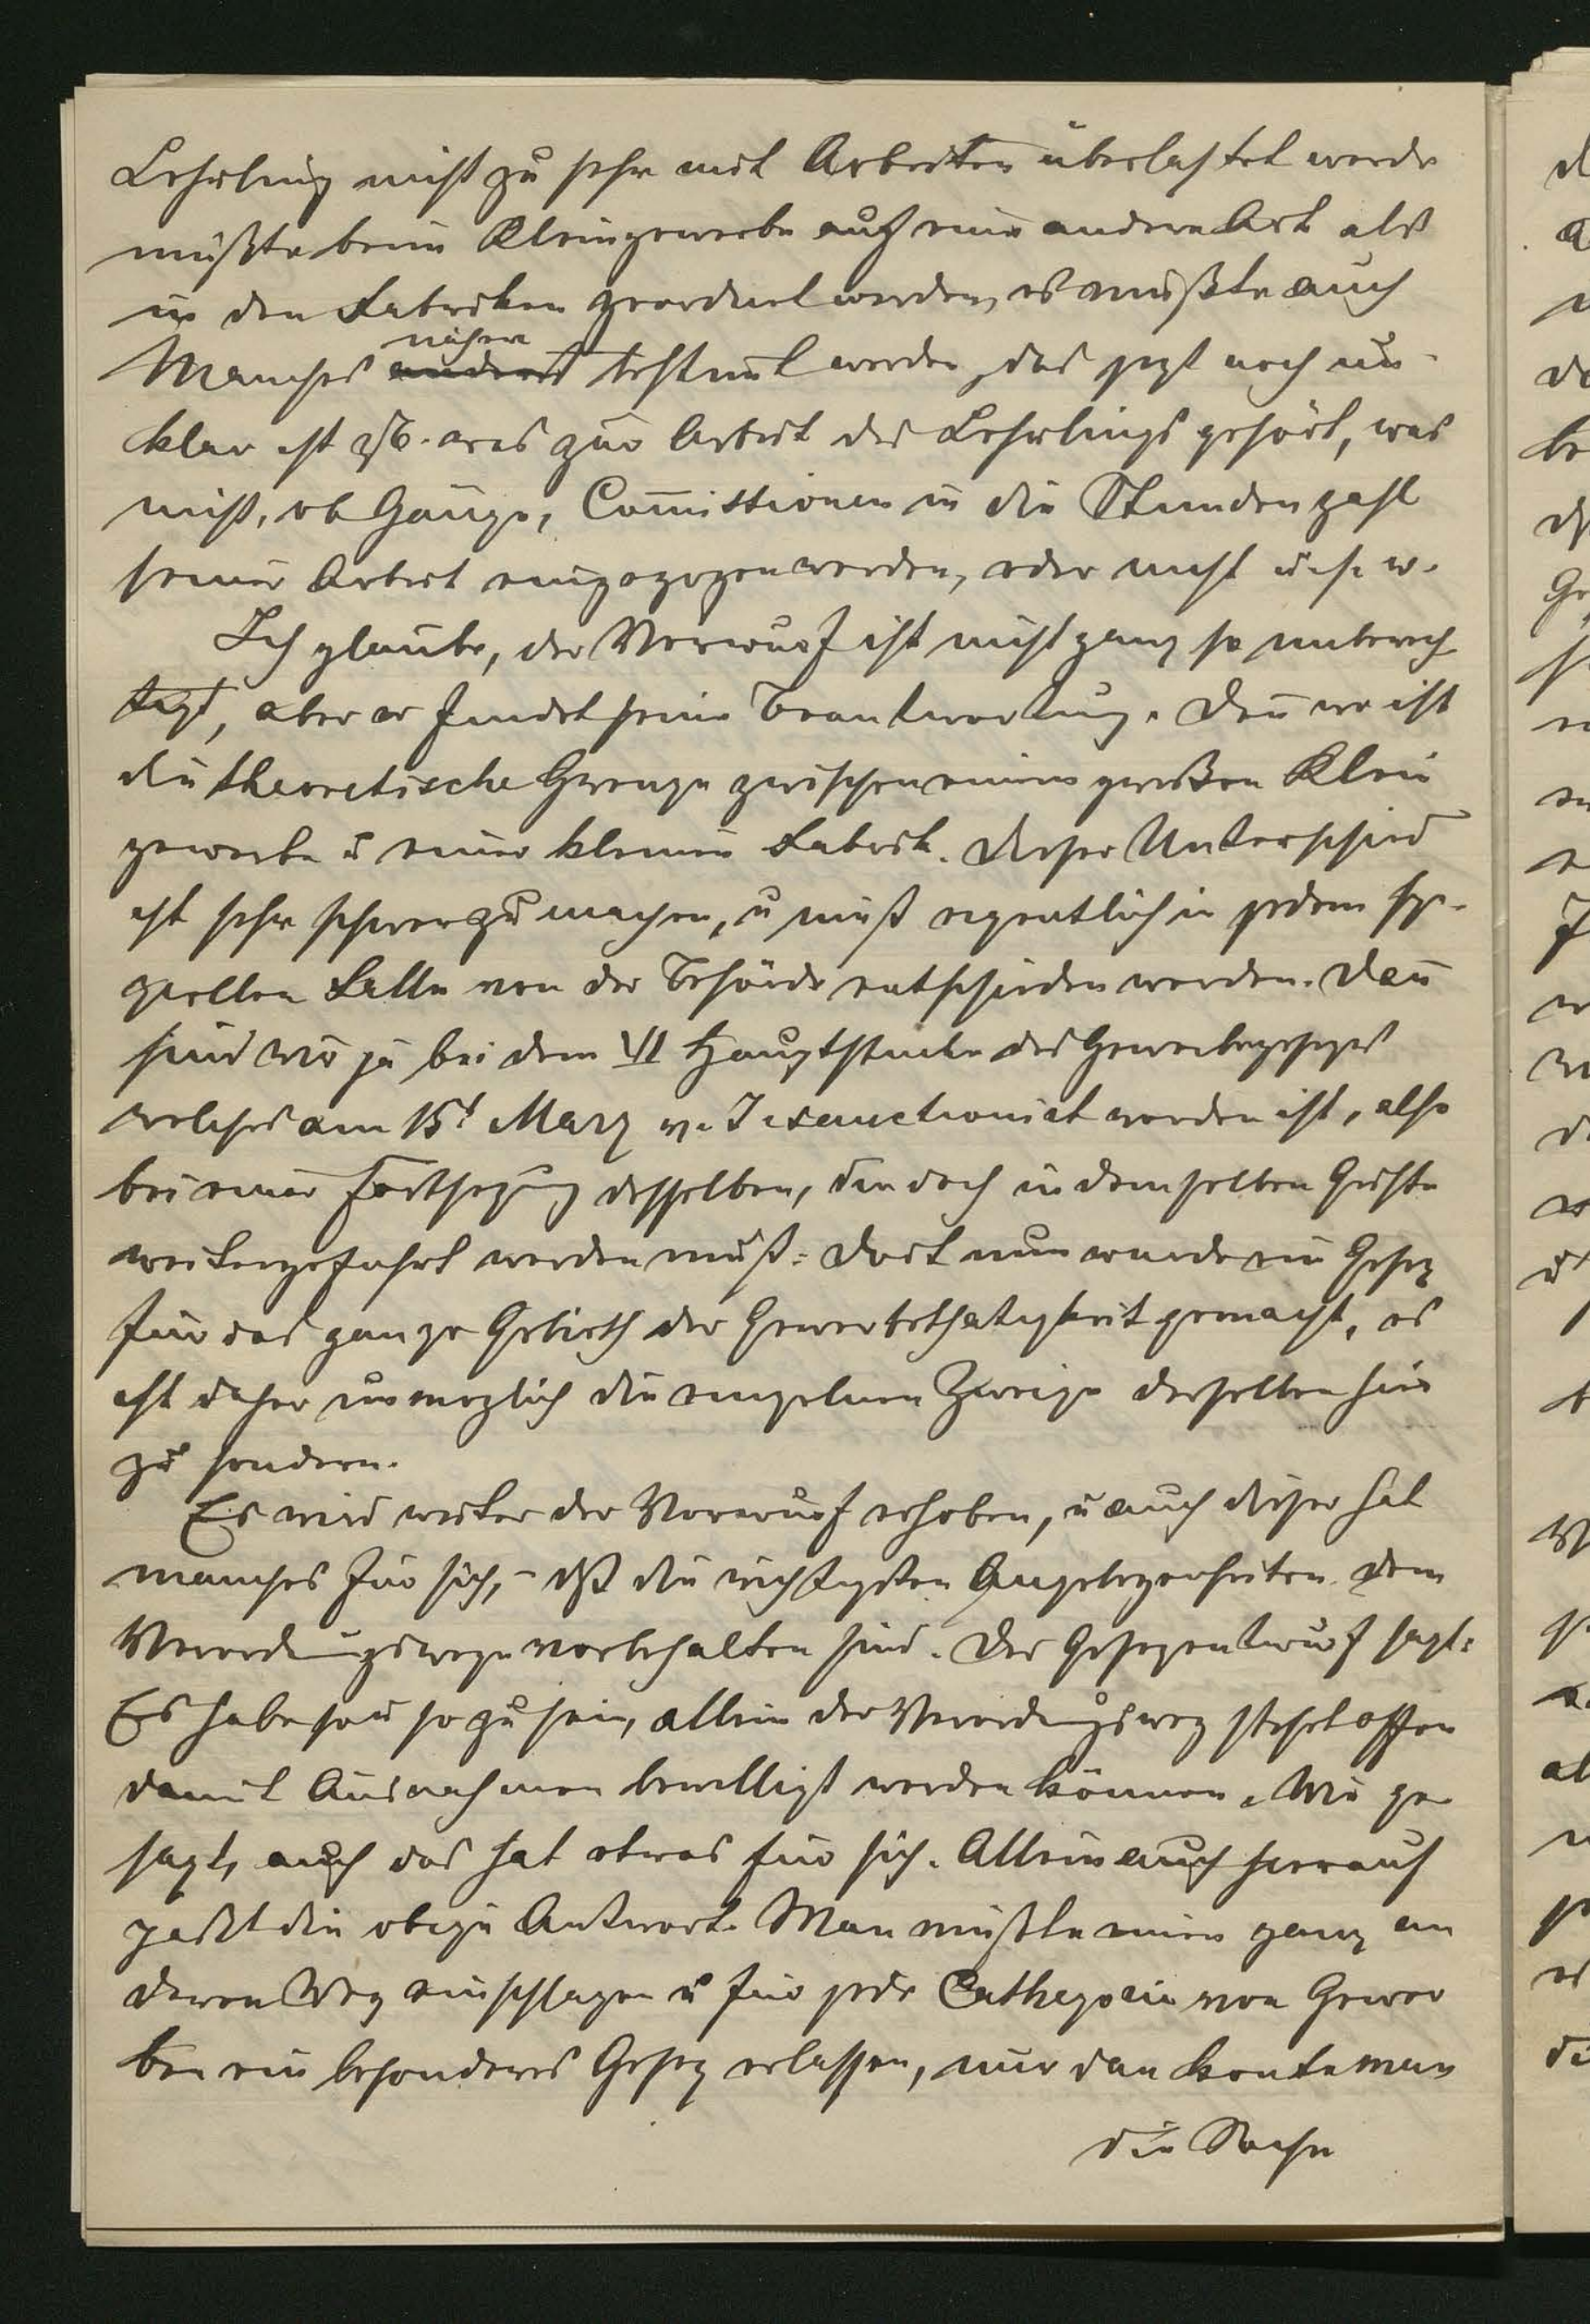 Lehrling nicht zu sehr mit Arbeiten überlastet werde
müßte beim Kleingewerbe auf eine andere Art als
in den Fabriken geordnet werden, es müßte auch
näher
Manches anderes bestimt werden, das jezt noch un-
klar ist zB. was zur Arbeit des Lehrlings gehört, was
nicht, ob Gänge, Comissionen in die Stundenzahl
seiner Arbeit eingezogen werden, oder nicht u. s. w.
Ich glaube, der Vorwurf ist nicht ganz so unberech
tigt, aber er findet seine Beantwortung. Den wo ist
die theoretische Grenze zwischen einem großen Klein
gewerbe u einer kleinen Fabrik. Dieser Unterschied
ist sehr schwer zu machen, u muß eigentlich in jedem spe-
ziellen Falle von der Behörde entschieden werden. Dan
sind wir ja bei dem VI Hauptstücke des Gewerbegesezes
welches am 15t März v. J sanctionirt worden ist, also
bei einer Fortsezung desselben, die doch in demselben Geiste
weitergeführt werden muß: Dort nun wurde ein Gesez
für das ganze Gebieth der Gewerbethätigkeit gemacht, es
ist daher unmöglich die einzelnen Zweige derselben hier
zu sondern.
Es wird weiter der Vorwurf erhoben, u auch dieser hat
manches für sich, – dß die wichtigsten Angelegenheiten dem
Verordnungswege vorbehalten sind. Der Gesezentwurf sagt:
Es habe so u so zu sein, allein der Verordnungsweg stehet offen
damit Ausnahmen bewilligt werden können. Wie ge-
sagt, auch das hat etwas für sich. Allein auch hierauf
paßt die obige Antwort. Man müßte einen ganz an
deren Weg einschlagen u für jede Cathegorie von Gewer
ben ein besonderes Gesez erlassen, nur dan konte man
die Sache